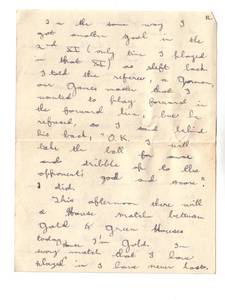 In the same way I
got another goal in the
2nd XI (only time I played
in that XI) as left back
I told the referee, a German,
our Games master that I
wanted to play forward in
the forward line, but he
refused, so I said behind
his back, "O.K. I will
take the ball for
and dribble it up to the
opponents goal and score."
I did.
This afternoon there will
a House match between
Gold & Green Houses
today. I'm Gold. In
every match that I have
played in I have never lost.